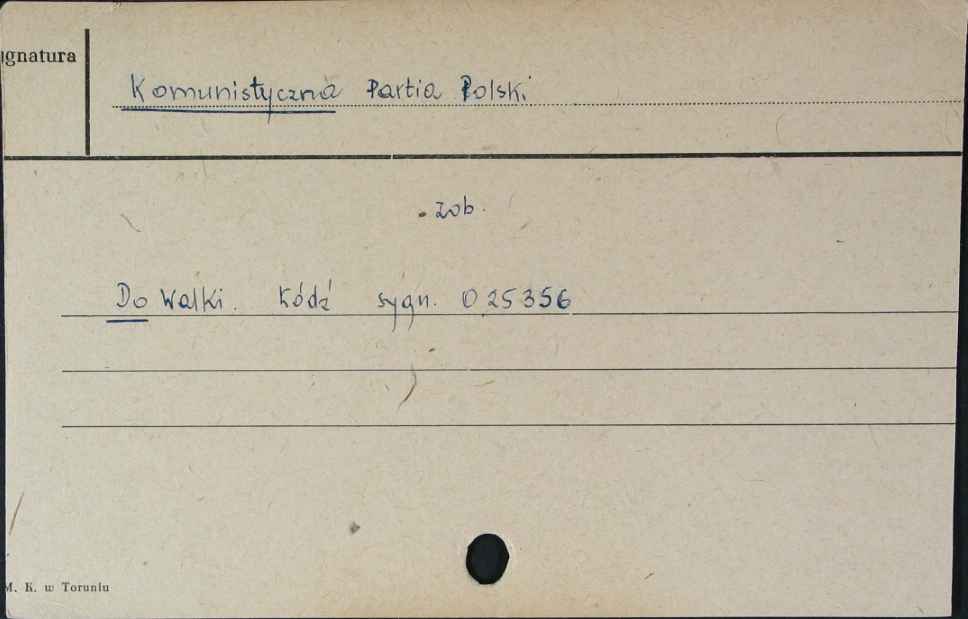 ignatura
Komunistyczna Partia Polski
zob.
Do Walki. Łódź sygn. 025356
M. K. w Toruniu